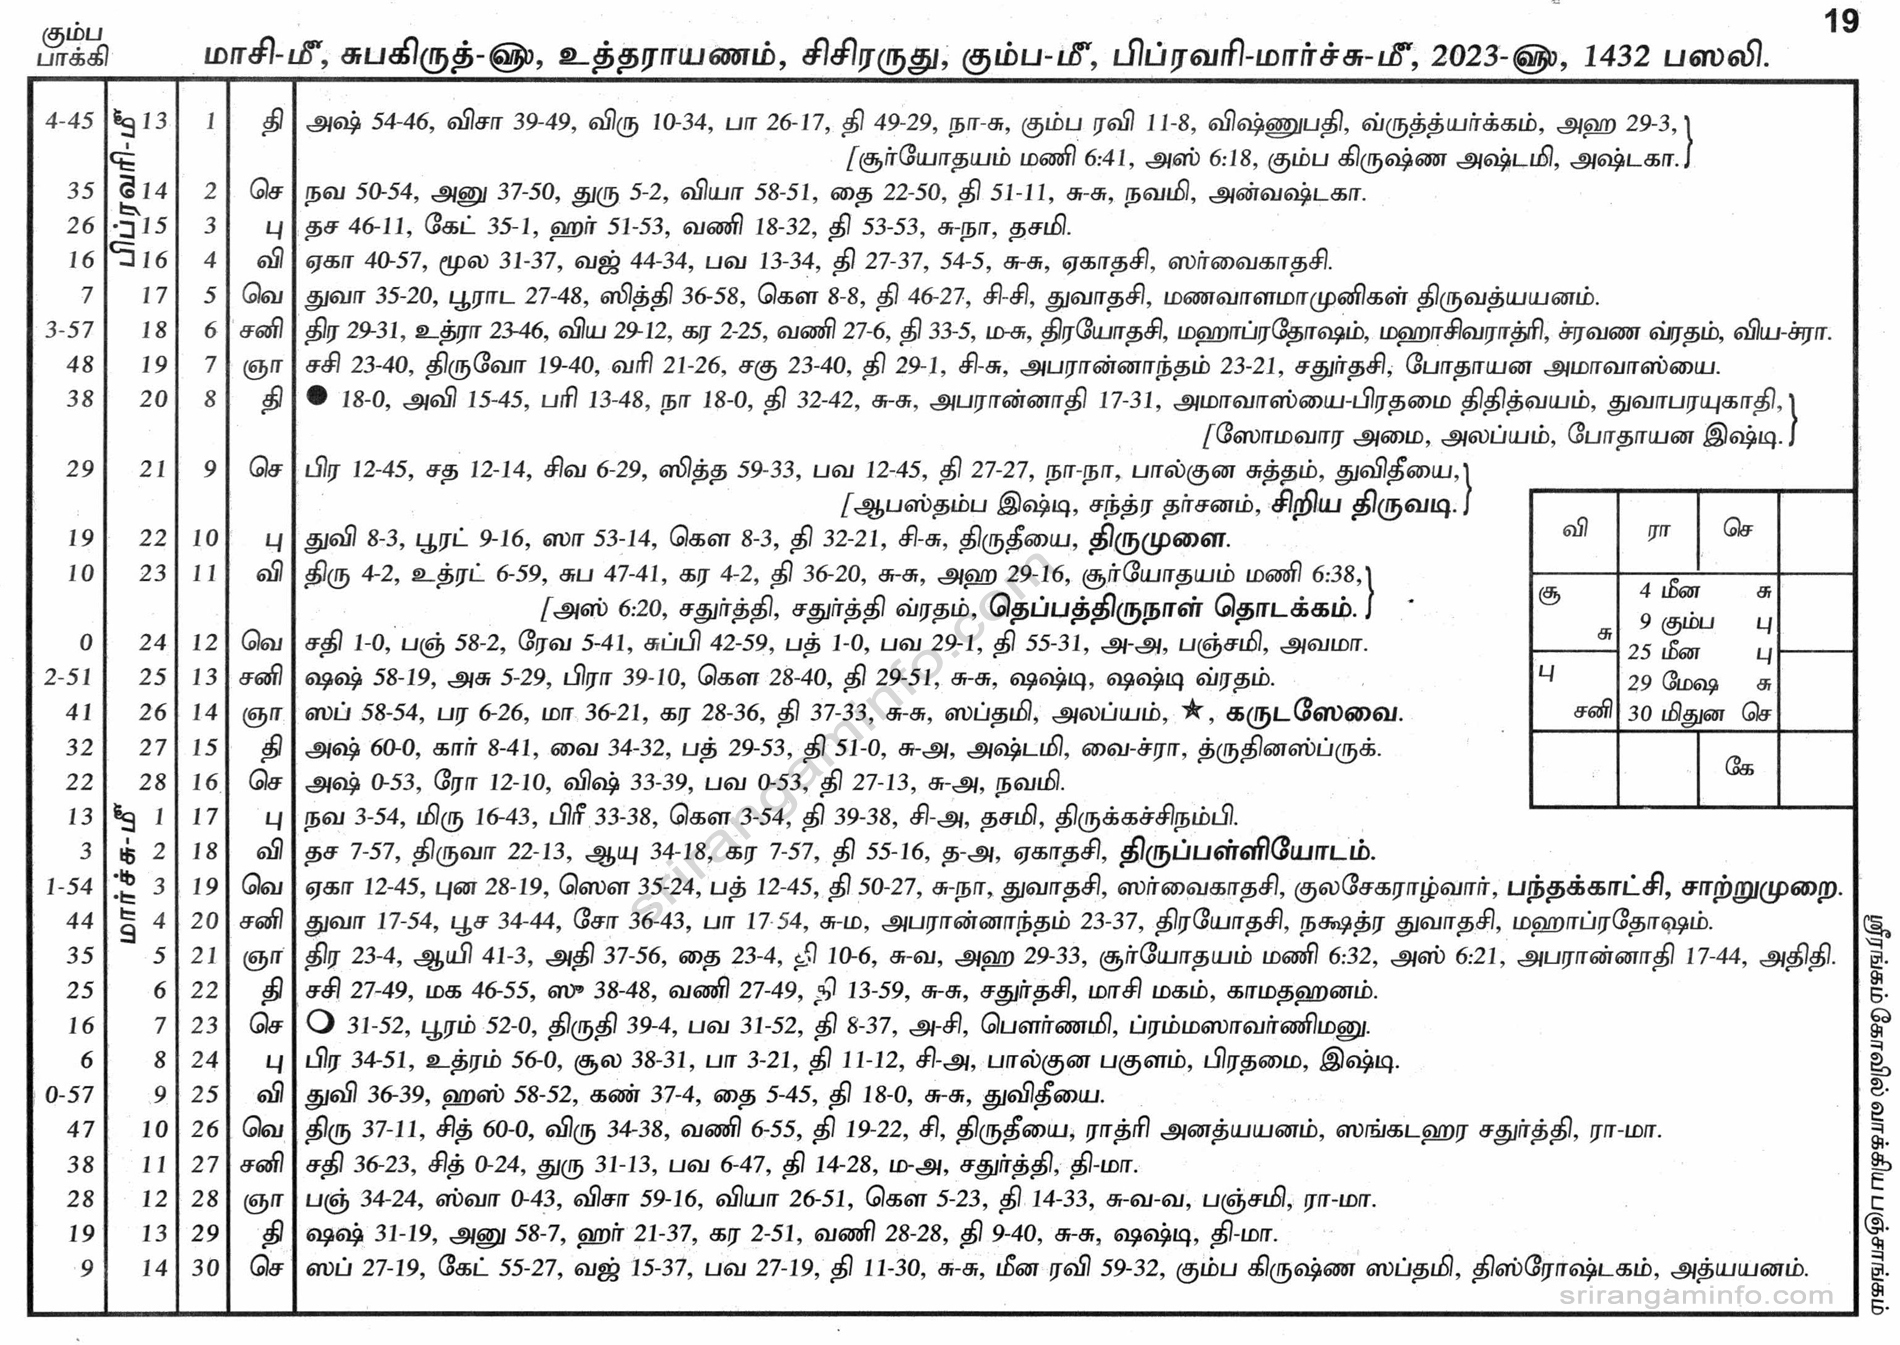 19
கும்ப
பாக்கி
மாசி-மீ, சுபகிருத்-௵, உத்தராயணம், சிசிரருது, கும்ப-மீ, பிப்ரவரி-மார்ச்சு-மீ, 2023-௵, 1432 பஸலி.
பிப்ரவரி-மீ
4-45 13 1 தி அஷ் 54-46, விசா 39-49, விரு 10-34, பா 26-17, தி 49-29, நா-சு, கும்ப ரவி 11-8, விஷ்ணுபதி, வ்ருத்த்யர்க்கம், அஹ 29-3,
[சூர்யோதயம் மணி 6:41, அஸ் 6:18, கும்ப கிருஷ்ண அஷ்டமி, அஷ்டகா.
35 14 2 செ நவ 50-54, அனு 37-50, துரு 5-2, வியா 58-51, தை 22-50, தி 51-11, சு-சு, நவமி, அன்வஷ்டகா.
26 15 3 பு தச 46-11, கேட் 35-1, ஹர் 51-53, வணி 18-32, தி 53-53, சு-நா, தசமி.
16 16 4 வி ஏகா 40-57, மூல 31-37, வஜ் 44-34, பவ 13-34, தி 27-37, 54-5, சு-சு, ஏகாதசி, ஸர்வைகாதசி.
7 17 5 வெ துவா 35-20, பூராட 27-48, ஸித்தி 36-58, கௌ 8-8, தி 46-27, சி-சி, துவாதசி, மணவாளமாமுனிகள் திருவத்யயனம்.
3-57 18 6 சனி திர 29-31, உத்ரா 23-46, விய 29-12, கர 2-25, வணி 27-6, தி 33-5, ம-சு, திரயோதசி, மஹாப்ரதோஷம், மஹாசிவராத்ரி, ச்ரவண வ்ரதம், விய-ச்ரா.
48 19 7 ஞா சசி 23-40, திருவோ 19-40, வரி 21-26, சகு 23-40, தி 29-1, சி-சு, அபரான்னாந்தம் 23-21, சதுர்தசி, போதாயன அமாவாஸ்யை.
38 20 8 தி ● 18-0, அவி 15-45, பரி 13-48, நா 18-0, தி 32-42, சு-சு, அபரான்னாதி 17-31, அமாவாஸ்யை-பிரதமை திதித்வயம், துவாபரயுகாதி,
[ஸோமவார அமை, அலப்யம், போதாயன இஷ்டி.
29 21 9 செ பிர 12-45, சத 12-14, சிவ 6-29, ஸித்த 59-33, பவ 12-45, தி 27-27, நா-நா, பால்குன சுத்தம், துவிதீயை,
[ஆபஸ்தம்ப இஷ்டி, சந்த்ர தர்சனம், சிறிய திருவடி.
19 22 10 பு துவி 8-3, பூரட் 9-16, ஸா 53-14, கௌ 8-3, தி 32-21, சி-சு, திருதீயை, திருமுளை.
10 23 11 வி திரு 4-2, உத்ரட் 6-59, சுப 47-41, கர 4-2, தி 36-20, சு-சு, அஹ 29-16, சூர்யோதயம் மணி 6:38,
[அஸ் 6:20, சதுர்த்தி, சதுர்த்தி வ்ரதம், தெப்பத்திருநாள் தொடக்கம்.
0 24 12 வெ சதி 1-0, பஞ் 58-2, ரேவ 5-41, சுப்பி 42-59, பத் 1-0, பவ 29-1, தி 55-31, அ-அ, பஞ்சமி, அவமா.
2-51 25 13 சனி ஷஷ் 58-19, அசு 5-29, பிரா 39-10, கௌ 28-40, தி 29-51, சு-சு, ஷஷ்டி, ஷஷ்டி வ்ரதம்.
41 26 14 ஞா ஸப் 58-54, பர 6-26, மா 36-21, கர 28-36, தி 37-33, சு-சு, ஸப்தமி, அலப்யம், ★, கருடஸேவை.
32 27 15 தி அஷ் 60-0, கார் 8-41, வை 34-32, பத் 29-53, தி 51-0, சு-அ, அஷ்டமி, வை-ச்ரா, த்ருதினஸ்ப்ருக்.
22 28 16 செ அஷ் 0-53, ரோ 12-10, விஷ் 33-39, பவ 0-53, தி 27-13, சு-அ, நவமி.
மார்ச்சு-மீ
13 1 17 பு நவ 3-54, மிரு 16-43, பிரீ 33-38, கௌ 3-54, தி 39-38, சி-அ, தசமி, திருக்கச்சிநம்பி.
3 2 18 வி தச 7-57, திருவா 22-13, ஆயு 34-18, கர 7-57, தி 55-16, த-அ, ஏகாதசி, திருப்பள்ளியோடம்.
1-54 3 19 வெ ஏகா 12-45, புன 28-19, ஸௌ 35-24, பத் 12-45, தி 50-27, சு-நா, துவாதசி, ஸர்வைகாதசி, குலசேகராழ்வார், பந்தக்காட்சி, சாற்றுமுறை.
44 4 20 சனி துவா 17-54, பூச 34-44, சோ 36-43, பா 17-54, சு-ம, அபரான்னாந்தம் 23-37, திரயோதசி, நக்ஷத்ர துவாதசி, மஹாப்ரதோஷம்.
35 5 21 ஞா திர 23-4, ஆயி 41-3, அதி 37-56, தை 23-4, தி 10-6, சு-வ, அஹ 29-33, சூர்யோதயம் மணி 6:32, அஸ் 6:21, அபரான்னாதி 17-44, அதிதி.
25 6 22 தி சசி 27-49, மக 46-55, ஸு 38-48, வணி 27-49, தி 13-59, சு-சு, சதுர்தசி, மாசி மகம், காமதஹனம்.
16 7 23 செ ○ 31-52, பூரம் 52-0, திருதி 39-4, பவ 31-52, தி 8-37, அ-சி, பௌர்ணமி, ப்ரம்மஸாவர்ணிமனு.
6 8 24 பு பிர 34-51, உத்ரம் 56-0, சூல 38-31, பா 3-21, தி 11-12, சி-அ, பால்குன பகுளம், பிரதமை, இஷ்டி.
0-57 9 25 வி துவி 36-39, ஹஸ் 58-52, கண் 37-4, தை 5-45, தி 18-0, சு-சு, துவிதீயை.
47 10 26 வெ திரு 37-11, சித் 60-0, விரு 34-38, வணி 6-55, தி 19-22, சி, திருதீயை, ராத்ரி அனத்யயனம், ஸங்கடஹர சதுர்த்தி, ரா-மா.
38 11 27 சனி சதி 36-23, சித் 0-24, துரு 31-13, பவ 6-47, தி 14-28, ம-அ, சதுர்த்தி, தி-மா.
28 12 28 ஞா பஞ் 34-24, ஸ்வா 0-43, விசா 59-16, வியா 26-51, கௌ 5-23, தி 14-33, சு-வ-வ, பஞ்சமி, ரா-மா.
19 13 29 தி ஷஷ் 31-19, அனு 58-7, ஹர் 21-37, கர 2-51, வணி 28-28, தி 9-40, சு-சு, ஷஷ்டி, தி-மா.
9 14 30 செ ஸப் 27-19, கேட் 55-27, வஜ் 15-37, பவ 27-19, தி 11-30, சு-சு, மீன ரவி 59-32, கும்ப கிருஷ்ண ஸப்தமி, திஸ்ரோஷ்டகம், அத்யயனம்.
வி ரா செ
சூ சு
4 மீன சு
9 கும்ப பு
25 மீன பு
29 மேஷ சு
30 மிதுன செ
பு சனி
கே
ஸ்ரீரங்கம் கோவில் வாக்கிய பஞ்சாங்கம்
srirangaminfo.com
srirangaminfo.com